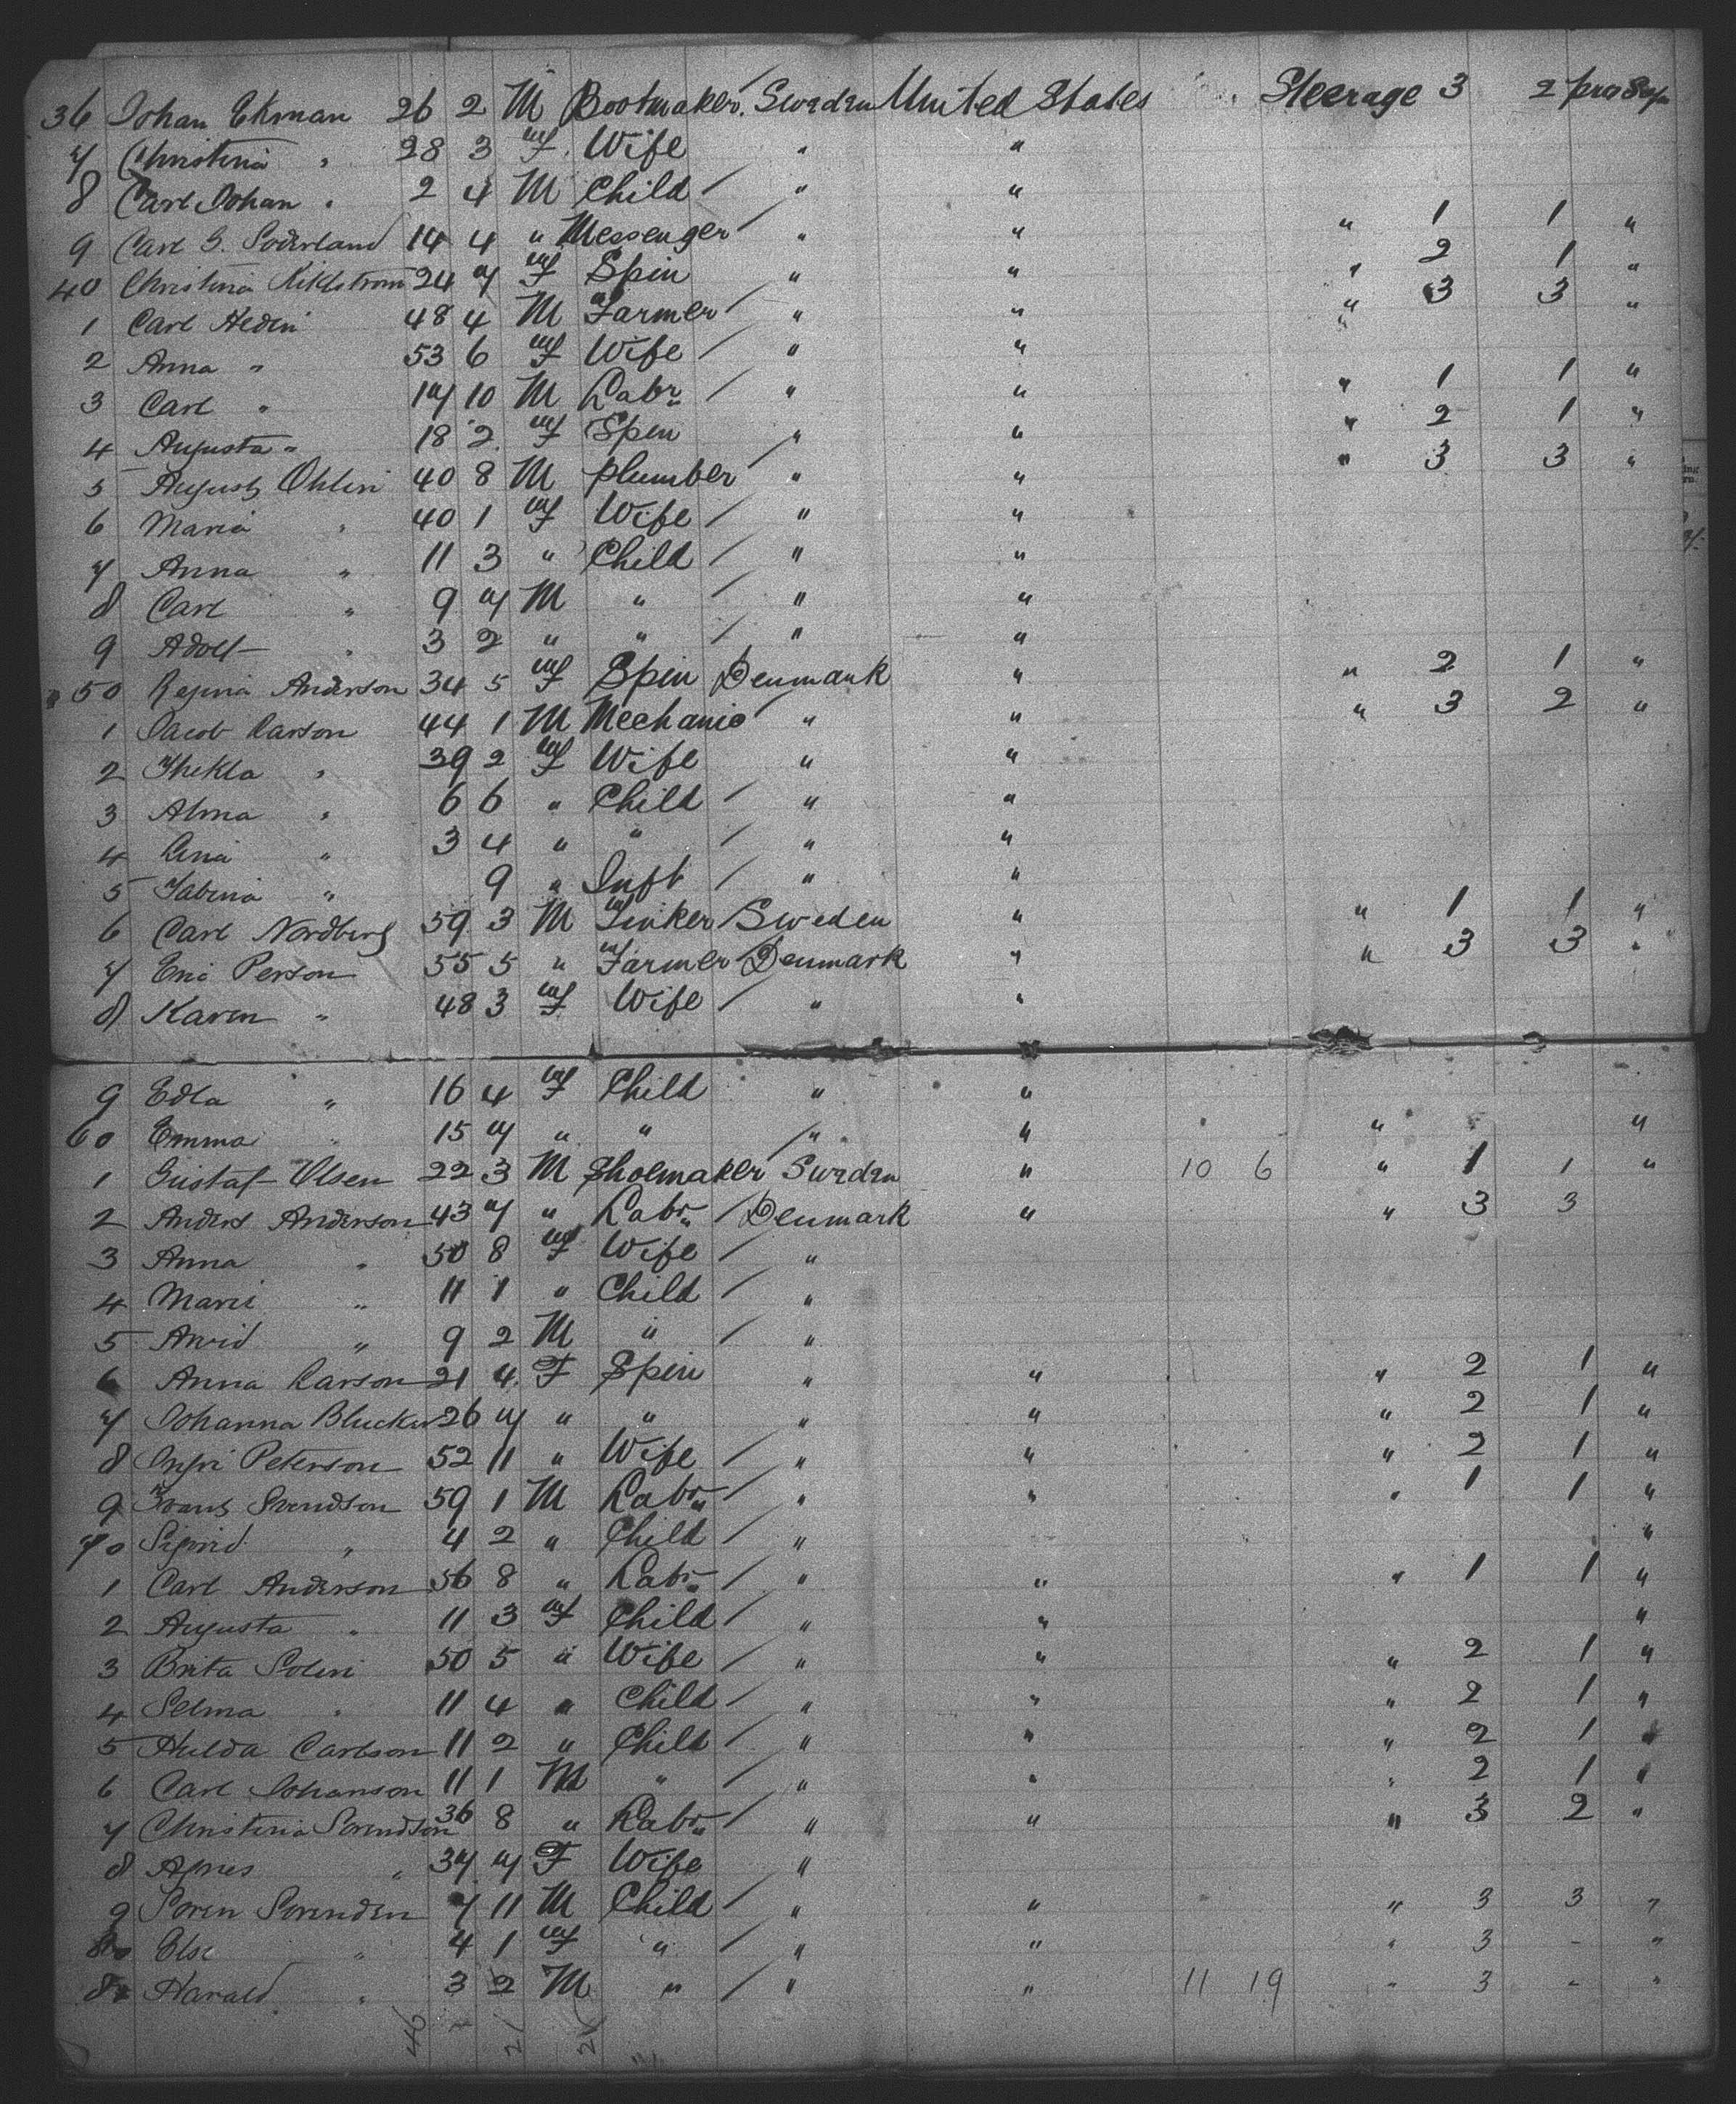 36 Johan Ekman 26 2 M Bootmaker. Sweden United States Steerage 3 2 pcs
7 Christina " 28 3 F Wife " "
8 Carl Johan " 2 4 M Child / " "
9 Carl G. Soderland 14 4 " Messenger / " " " 1 1 "
40 Christina 24 7 F Spin " " " 2 1 "
1 Carl Hedin 48 4 M Farmer / " " " 3 3 "
2 Anna " 53 6 F Wife / " "
3 Carl " 17 10 M Labr / " " " 1 1 "
4 Augusta " 18 2 F Spin " " " 2 1 "
5 August Ohlin 40 8 M Plumber " " " 3 3 "
6 Maria " 40 1 F Wife / " "
7 Anna " 11 3 " Child / " "
8 Carl " 9 7 M " " "
9 Adolf " 3 2 " " / " "
50 Regina Anderson 34 5 F Spin Denmark " " 2 1 "
1 Jacob Larson 44 1 M Mechanic " " " 3 2 "
2 Thekla " 39 2 F Wife " "
3 Alma " 6 6 " Child / " "
4 Lina " 3 4 " " / " "
5 Sabina " 9 " Inft / " "
6 Carl Nordberg 59 3 M Tinker / Sweden " " 1 1 "
7 Eric Person 55 5 " Farmer / Denmark " " 3 3 "
8 Karen " 48 3 F Wife / " "
9 Edla " 16 4 F Child " "
60 Emma " 15 7 " " / " " " "
1 Gustaf Olsen 22 3 M Shoemaker Sweden " 10 6 " 1 1 "
2 Anders Anderson 43 7 " Labr / Denmark " " 3 3
3 Anna " 50 8 F Wife / "
4 Marie " 11 1 " Child / "
5 Arvid " 9 2 M " / "
6 Anna Larson 21 4 F Spin " " " 2 1 "
7 Johanna 26 7 " " " " " 2 1 "
8 Peterson 52 11 " Wife / " " " 2 1 "
9 Svendson 59 1 M Labr / " " " 1 1 "
70 Sigrid " 4 2 " Child / " "
1 Carl Anderson 56 8 " Labr / " " " 1 1 "
2 Augusta " 11 3 F Child / " " "
3 Brita Solin 50 5 " Wife / " " " 2 1 "
4 Selma " 11 4 " Child / " " " 2 1 "
5 Hulda Carlson 11 2 " Child / " " " 2 1 "
6 Carl Johanson 11 1 M " / " " " 2 1 "
7 Christina Svendson 36 8 " Labr / " " " 3 2 "
8 Agnes " 37 7 F Wife "
9 Soren 7 11 M Child / " " " 3 3 "
80 Else " 4 1 F " / " " " 3 - "
81 Harald " 3 2 M " / " " 11 19 " 3 - "
46 21